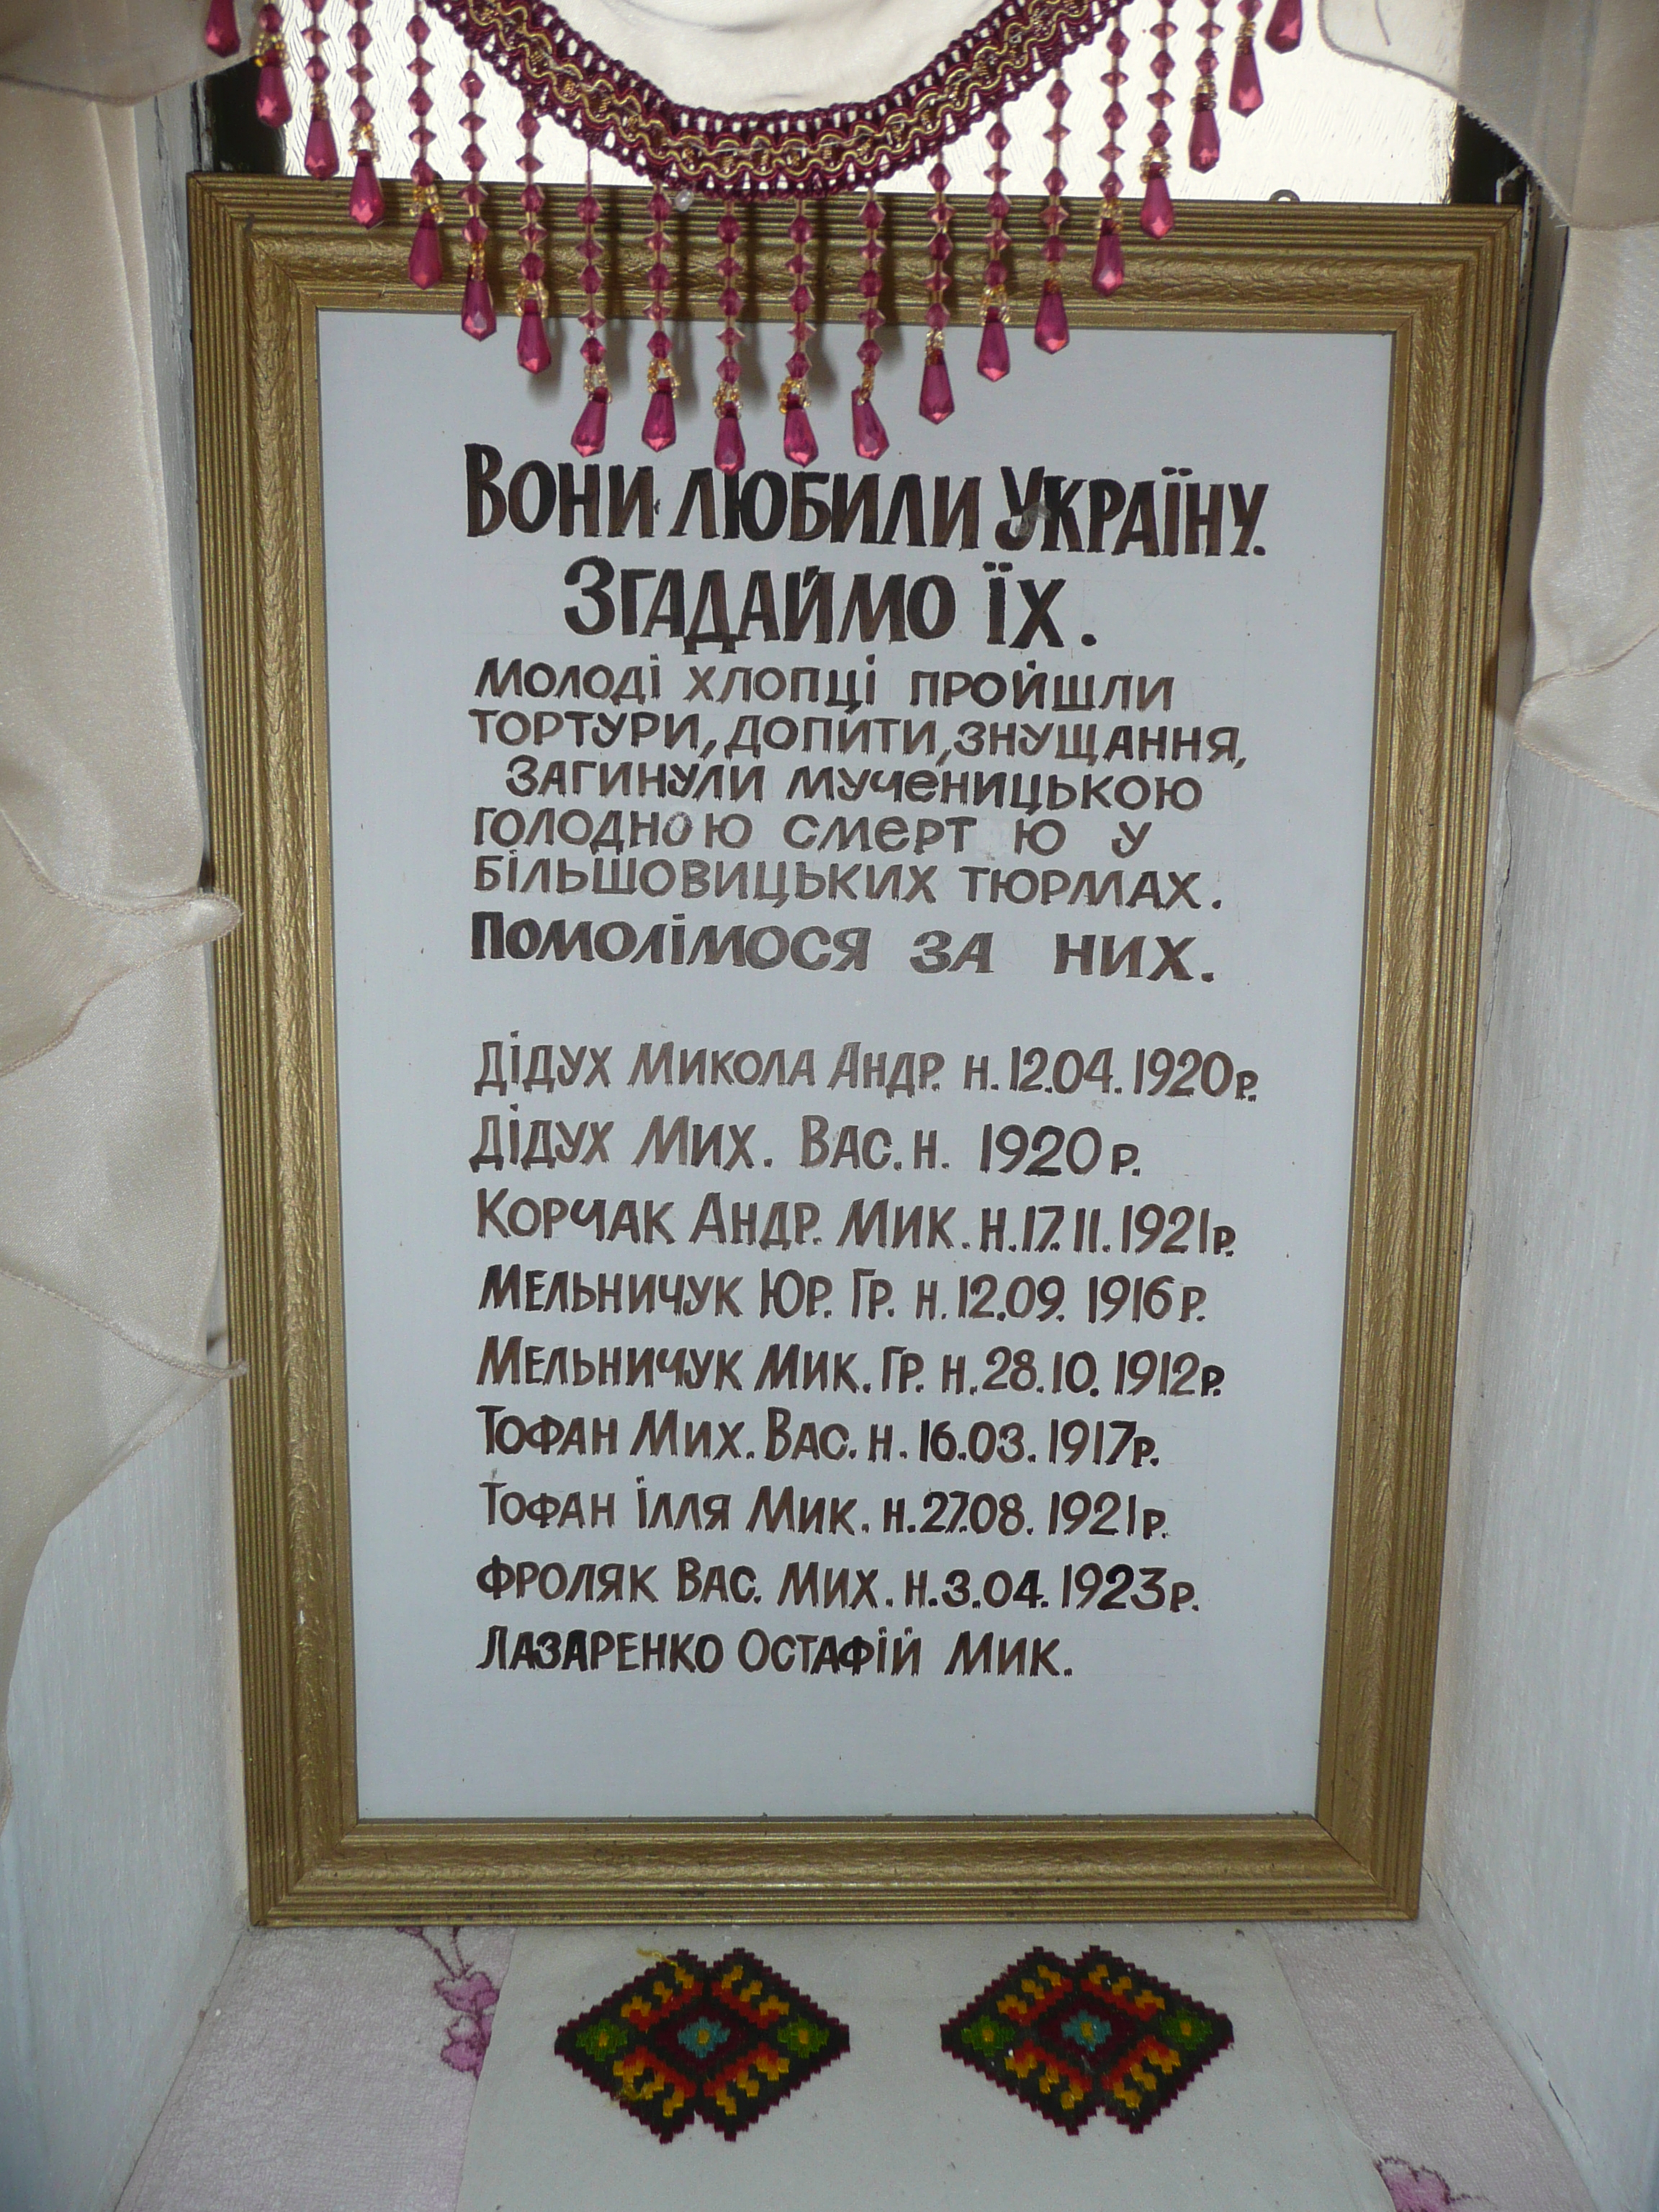 Вони любили Україну.
Згадаймо їх.
Молоді хлопці пройшли
тортури, допити, знущання,
загинули мученицькою
голодною смерт ю у
більшовицьких тюрмах.
Помолімося за них.
Дідух Микола Андр. н. 12.04. 1920р.
Дідух Мих. Вас. н. 1920р.
Корчак Андр. Мик. н. 17.11. 1921р.
Мельничук Юр. Гр. н. 12.09. 1916р.
Мельничук Мик. Гр. н. 28.10. 1912р.
Тофан Мих. Вас. н. 16.03. 1917р.
Тофан Ілля Мик. н. 27.08. 1921р.
Фроляк Вас. Мих. н. 3.04. 1923р.
Лазаренко Остафій Мик.